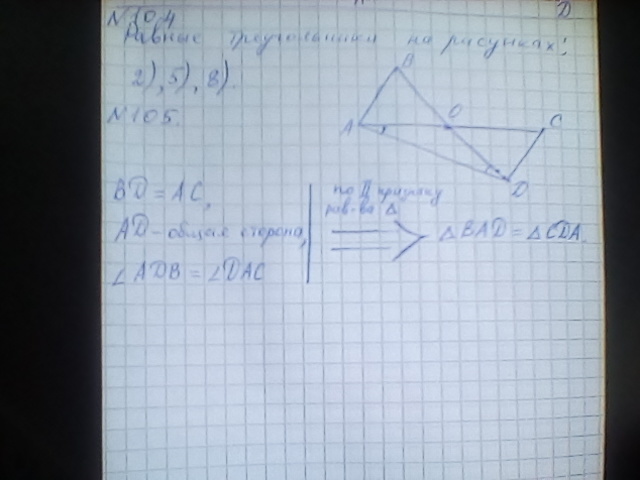 D
№104
Равные треугольники на рисунках:
2), 5), 8).
№105.
B
A
O
C
D
BD = AC,
AD - общая сторона,
∠ADB = ∠DAC
по II признаку
рав-ва Δ
ΔBAD = ΔCDA.